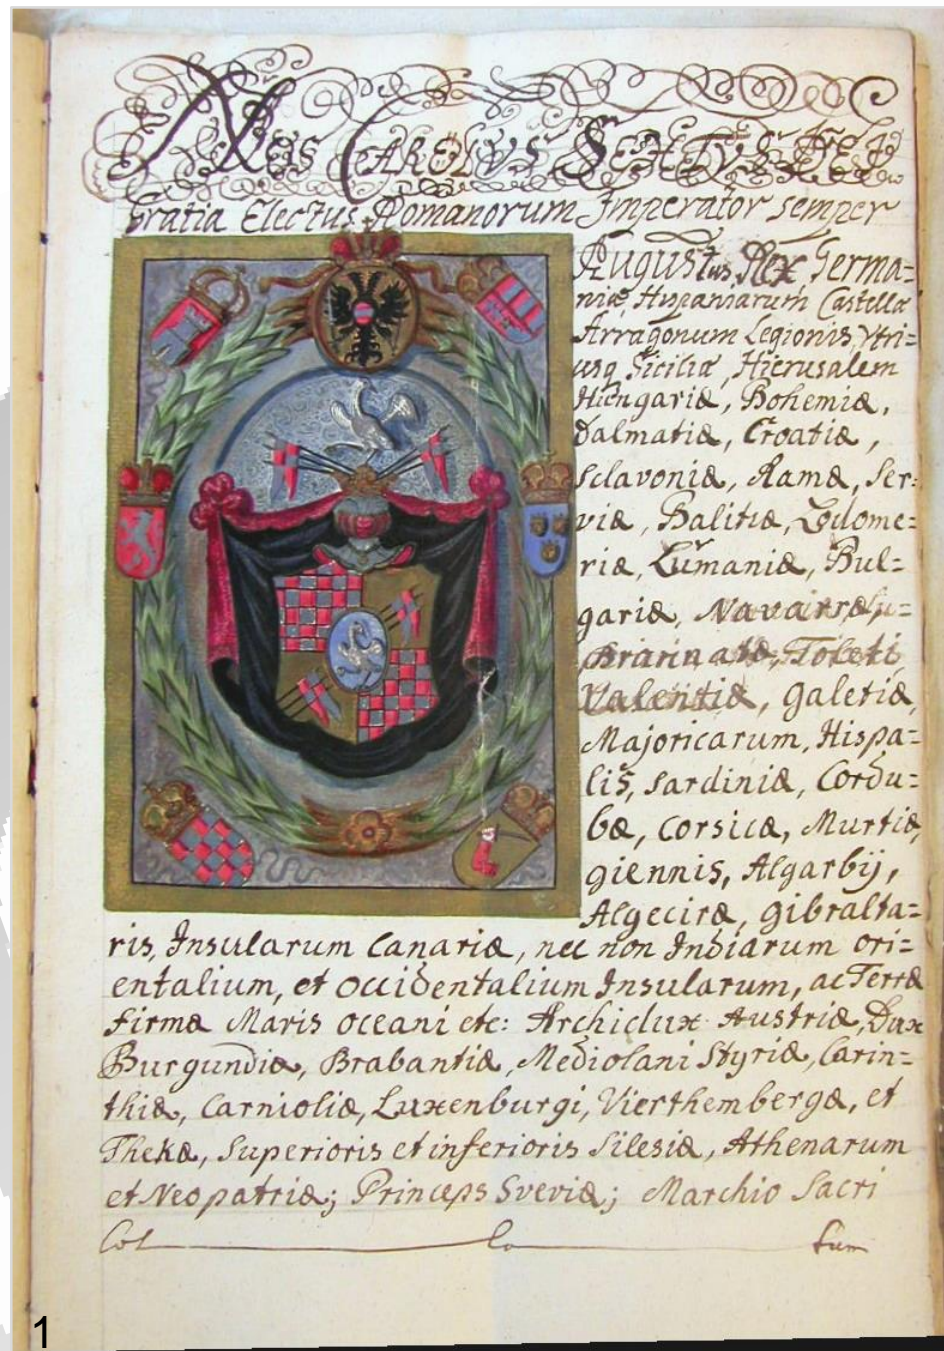 Nos CAROLVS SEXTVS DEI
Gratia Electus Romanorum Imperator semper
Augustus, Rex Germa=
niæ, Hispaniarum Castellæ
Arragonum Legionis, Vtri=
usq Siciliæ, Hierusalem
Hungariæ, Bohemiæ,
Dalmatiæ, Croatiæ,
Sclavoniæ, Ramæ, Ser=
viæ, Galitiæ, Lodome=
riæ, Cumaniæ, Bul=
gariæ, Navarræ,
Toleti
Valentiæ, Galetiæ,
Majoricarum, Hispa=
lis, Sardiniæ, Cordu=
bæ, Corsicæ, Murtiæ,
giennis, Algarbij,
Algeciræ, Gibralta=
ris, Insularum Canariæ, nec non Indiarum ori=
entalium, et Occidentalium Insularum, ac Terræ
firmæ Maris Oceani etc: Archidux Austriæ, Dux
Burgundiæ, Brabantiæ, Mediolani Styriæ, Carin=
thiæ, Carnioliæ, Luxenburgi, Vierthembergæ, et
Thekæ, Superioris et inferioris Silesiæ, Athenarum
et Neopatriæ; Princeps Sveviæ; Marchio Sacri
Col la tum
1